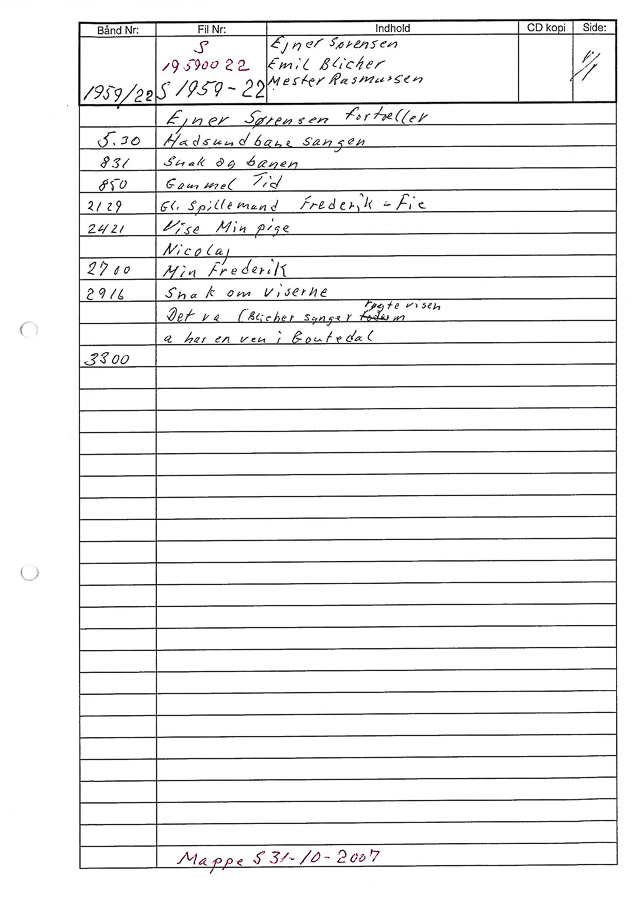 Bånd Nr: Fil Nr: Indhold CD kopi Side:
S Ejner Sørensen
19590022 Emil Blicher 1/1
1959/22 S 1959-22 Mester Rasmussen
Ejner Sørensen fortæller
5.30 Hadsund bane sangen
831 Snak og banen
850 Gammel Tid
2129 Gl. Spillemand Frederik - Fie
2421 Vise Min pige
Nicolaj
2700 Min Frederik
2916 Snak om viserne
Det va (Blicher synger røgtevisen
a har en ven i
3300
Mappe S 31-10-2007